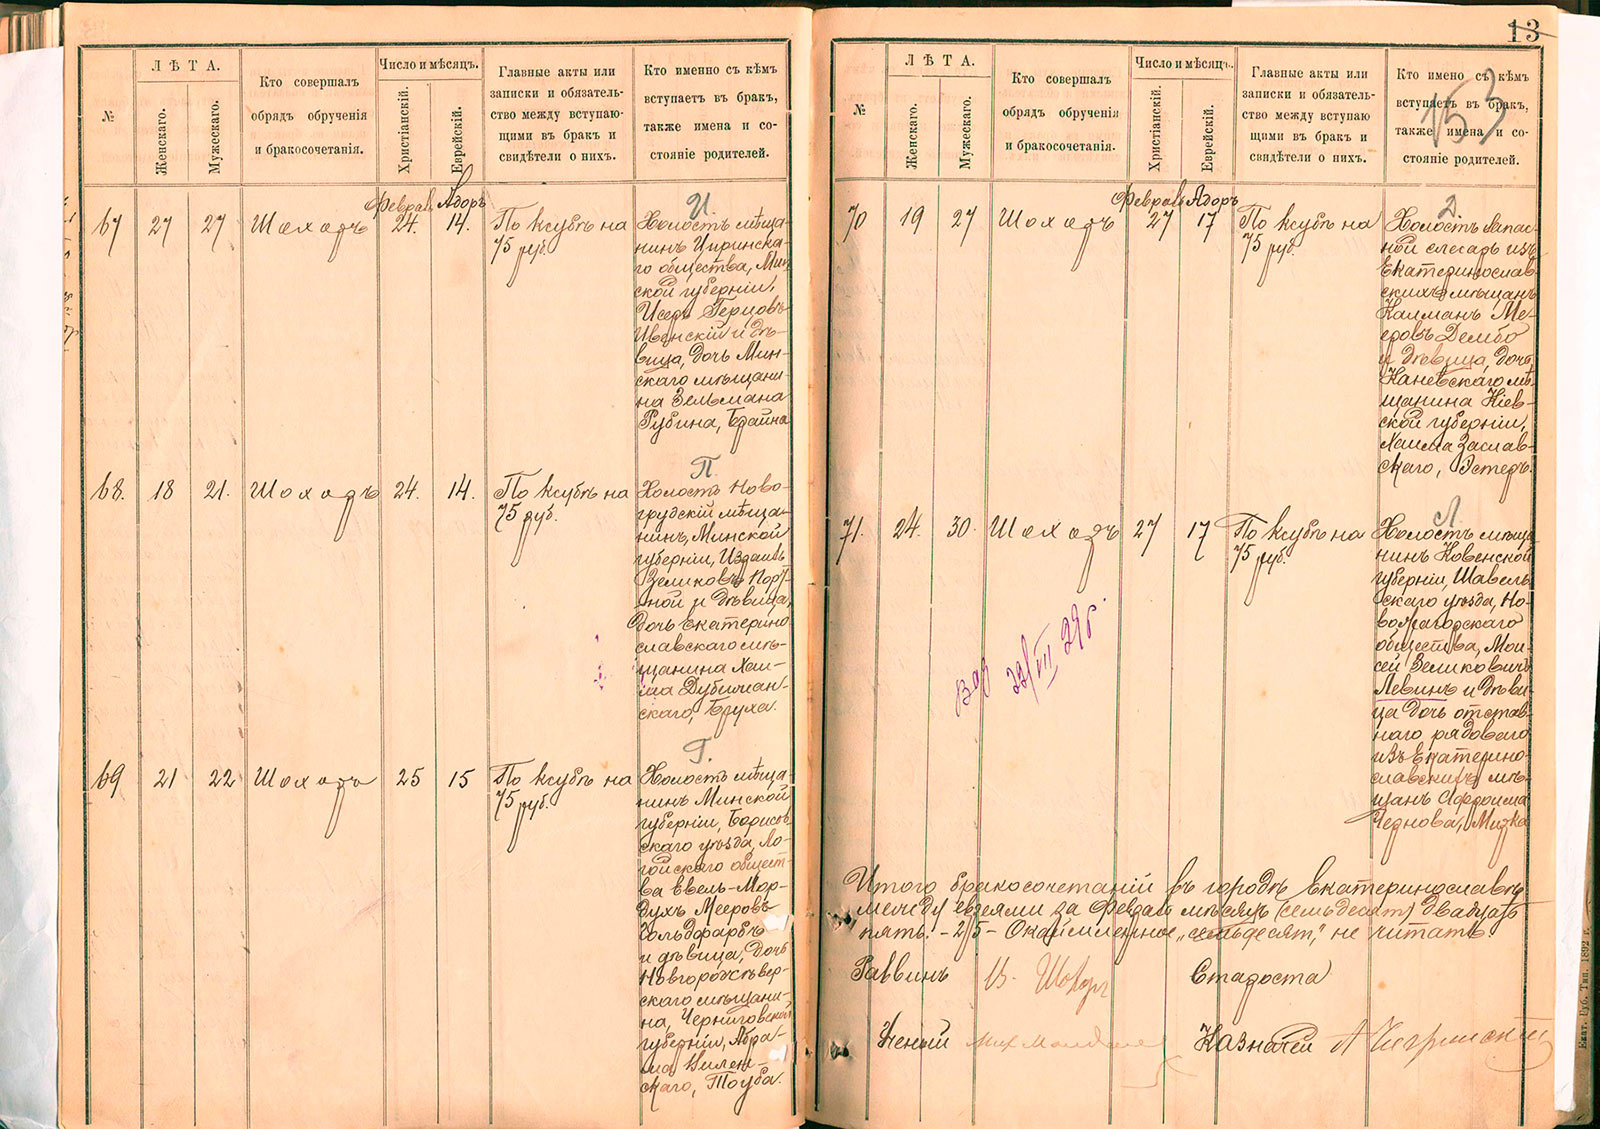 13
153
Л Ѣ Т А.
№
Женскаго.
Мужескаго.
Кто совершалъ
обрядъ обрученія
и бракосочетанія.
Число и мѣсяцъ.
Христіанскій.
Еврейскій.
Главные акты или
записки и обязатель-
ство между вступаю-
щими въ бракъ и
свидѣтели о нихъ.
Кто именно съ кѣмъ
вступаетъ въ бракъ,
также имена и со-
стояніе родителей.
Февраль Адоръ
67 27 27 Шохоръ 24. 14. По ксубѣ на
75 руб.
И.
Холостъ мѣща-
нинъ
го общества, Мин-
ской губерніи,
Исеръ Герцовъ
Ивенскій и дѣ-
вица, дочь Мин-
скаго мѣщани-
на Зельмана
Рубина, Брайна
68. 18 21. Шохоръ 24. 14. По ксубѣ на
75 руб.
П.
Холостъ Ново-
грудскій мѣща-
нинъ, Минской
губерніи,
Зеликовъ Порт-
ной и дѣвица,
дочь Екатерино
славскаго мѣ-
щанина Хаи-
ма
скаго, Бруха.
69 21 22 Шохоръ 25 15 По ксубѣ на
75 руб.
Г.
Холостъ мѣща-
нинъ Минской
губерніи, Борисов-
скаго уѣзда, Ло-
гойскаго общест-
ва Евель-Мор-
духъ Мееровъ
Гольдфарбъ
и дѣвица, дочь
Новгородсѣвер-
скаго мѣщани-
на, Черниговской
губерніи, Абра-
ма Вилен-
скаго, Тоуба.
Л Ѣ Т А.
№
Женскаго.
Мужескаго.
Кто совершалъ
обрядъ обрученія
и бракосочетанія.
Число и мѣсяцъ.
Христіанскій.
Еврейскій.
Главные акты или
записки и обязатель-
ство между вступаю
щими въ бракъ и
свидѣтели о нихъ.
Кто имено съ кѣмъ
вступаетъ въ бракъ,
также имена и со-
стояніе родителей.
Февраль Адоръ
70 19 27 Шохоръ 27 17 По ксубѣ на
75 руб.
Д.
Холостъ запас-
ной слесарь изъ
Екатеринослав-
скихъ мѣщанъ
Калманъ Ме-
еровъ Дембо
и дѣвица, дочь
Каневскаго мѣ-
щанина Кіев-
ской губерніи,
Хаима Заслав-
скаго, Эстеръ.
71. 24. 30. Шохоръ 27 17 По ксубѣ на
75 руб.
Л.
Холостъ мѣща-
нинъ Ковенской
губерніи, Шавель-
скаго уѣзда, Но-
вожагорскаго
общества, Мои-
сей Зеликовичъ
Левинъ и дѣви-
ца дочь отстав-
наго рядового
изъ Екатерино-
славскихъ мѣ-
щанъ Афроима
Чернова,
22/VII 29г.
Итого бракосочетаній въ городѣ Екатеринославѣ
между евреями за Февраль мѣсяцъ (семьдесят) двадцать
пять. - 25 - Окаймленное „семьдесят," не читать.
Раввинъ Шохоръ Староста
Ученый Казначей
Екат. Губ. Тип. 1892 г.